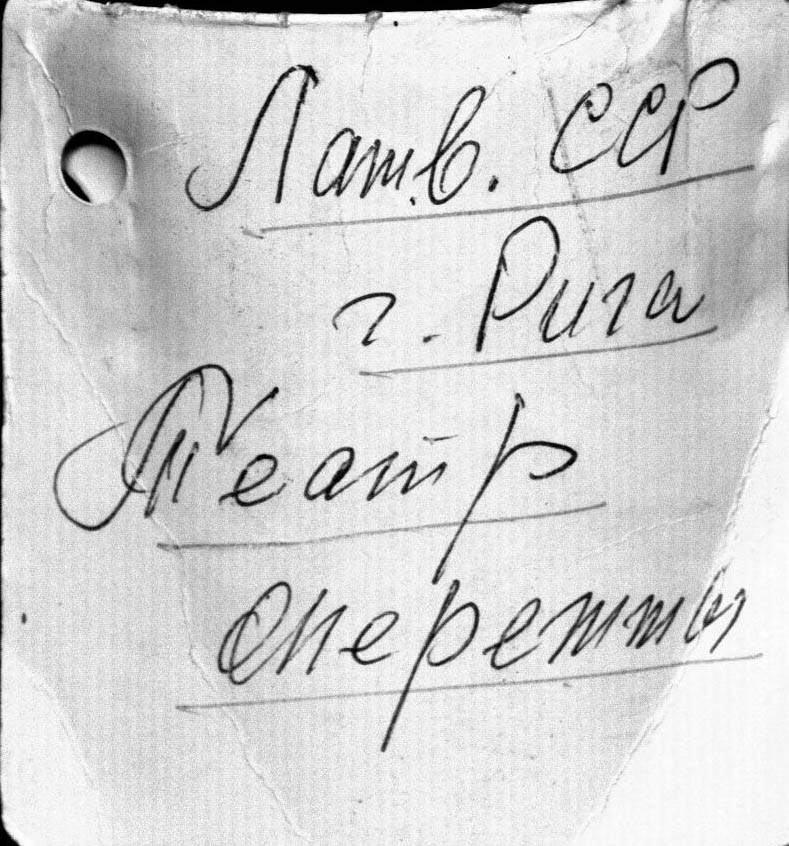 Латв. ССР
г. Рига
Театр
оперетты